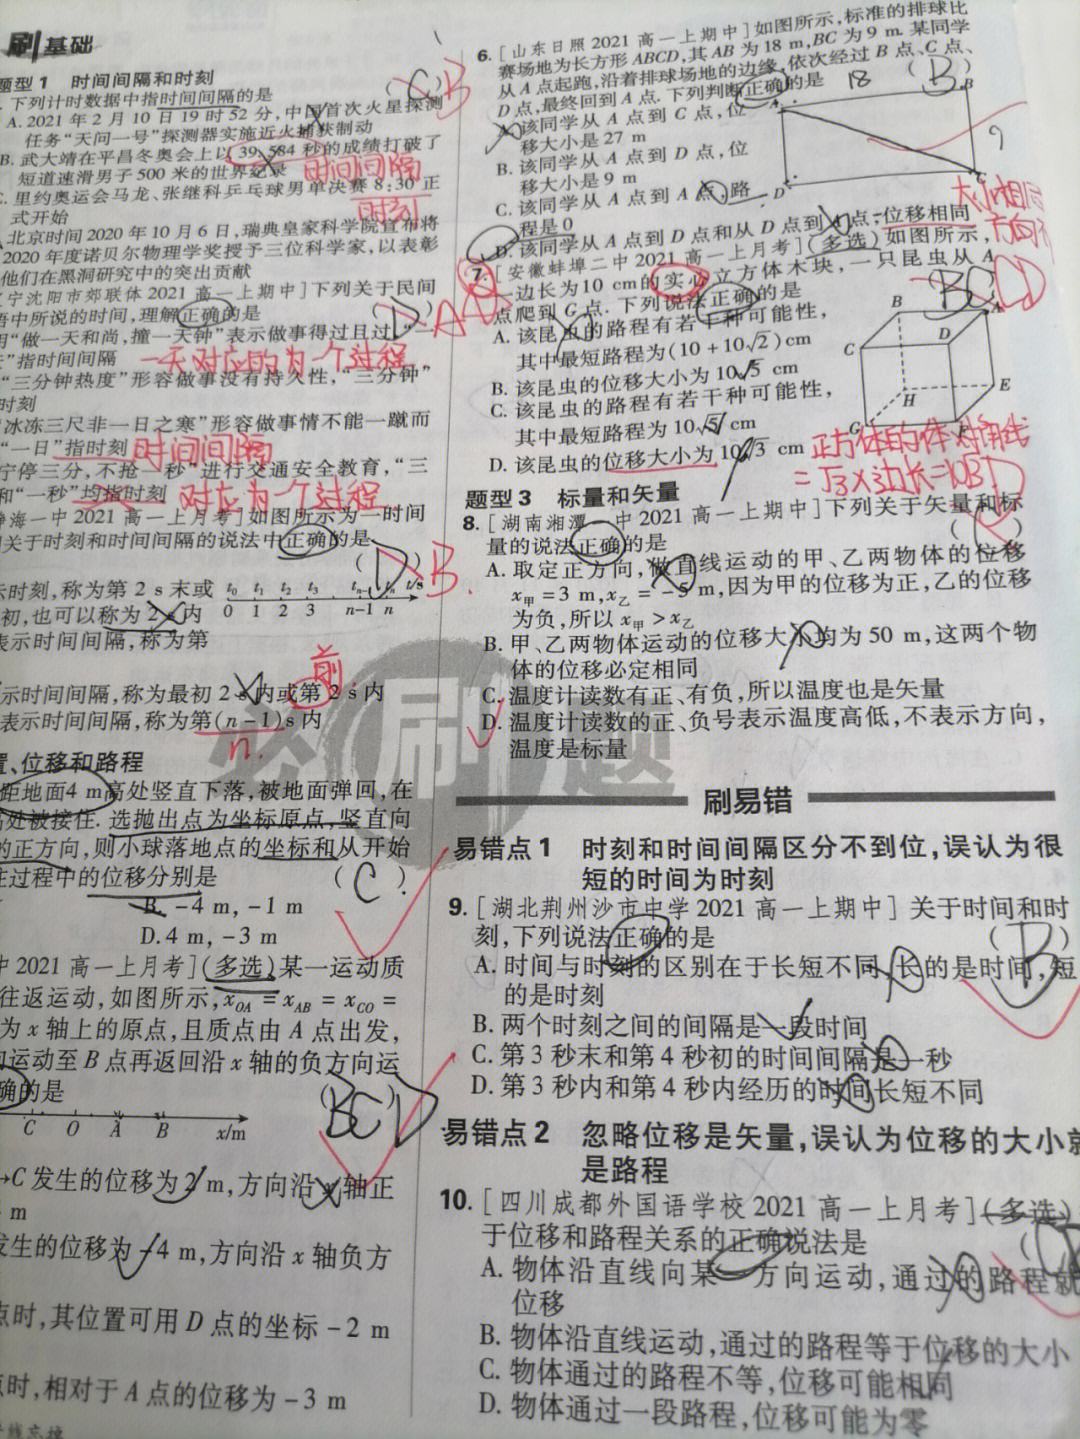 刷 基础
题型 1 时间间隔和时刻
下列计时数据中指时间间隔的是 (C) B
A. 2021 年 2 月 10 日 19 时 52 分,中国首次火星探测
任务“天问一号”探测器实施近火捕获制动
B. 武大靖在平昌冬奥会上以 39.584 秒的成绩打破了
短道速滑男子 500 米的世界纪录 时间间隔
C. 里约奥运会马龙、张继科乒乓球男单决赛 8:30 正
式开始 时刻
北京时间 2020 年 10 月 6 日,瑞典皇家科学院宣布将
2020 年度诺贝尔物理学奖授予三位科学家,以表彰
他们在黑洞研究中的突出贡献
辽宁沈阳市郊联体 2021 高一上期中]下列关于民间
语中所说的时间,理解正确的是
用“做一天和尚,撞一天钟”表示做事得过且过,“一
天”指时间间隔 一天对应的为一个过程
“三分钟热度”形容做事没有持久性,“三分钟”
时刻
“冰冻三尺非一日之寒”形容做事情不能一蹴而
“一日”指时刻 时间间隔
宁停三分,不抢一秒”进行交通安全教育,“三
和“一秒”均指时刻 对应为一个过程
静海一中 2021 高一上月考]如图所示为一时间
关于时刻和时间间隔的说法中正确的是
(D) B.
示时刻,称为第 2 s 末或
t0 t1 t2 t3 tn-1 tn t/s
初,也可以称为 2 s 内
0 1 2 3 n-1 n
表示时间间隔,称为第
前
示时间间隔,称为最初 2 s 内或第 2 s 内
表示时间间隔,称为第(n-1)s 内
n.
置、位移和路程
距地面4 m高处竖直下落,被地面弹回,在
高处被接住. 选抛出点为坐标原点,竖直向
的正方向,则小球落地点的坐标和从开始
过程中的位移分别是 (C).
B. -4 m, -1 m
D. 4 m, -3 m
中 2021 高一上月考](多选)某一运动质
往返运动,如图所示,xOA = xAB = xCO =
为 x 轴上的原点,且质点由 A 点出发,
向运动至 B 点再返回沿 x 轴的负方向运
确的是 (BCD)
C O A B x/m
→C 发生的位移为 2 m,方向沿 x 轴正
m
发生的位移为 -4 m,方向沿 x 轴负方
点时,其位置可用 D 点的坐标 -2 m
点时,相对于 A 点的位移为 -3 m
6. [山东日照 2021 高一上期中]如图所示,标准的排球比
赛场地为长方形 ABCD,其 AB 为 18 m,BC 为 9 m. 某同学
从 A 点起跑,沿着排球场地的边缘,依次经过 B 点、C 点、
D 点,最终回到 A 点. 下列判断正确的是 (B)
A. 该同学从 A 点到 C 点,位
移大小是 27 m
B. 该同学从 A 点到 D 点,位
移大小是 9 m
C. 该同学从 A 点到 A 点,路
程是 0
D. 该同学从 A 点到 D 点和从 D 点到 A 点,位移相同
18
A B
9
D C
7. [安徽蚌埠二中 2021 高一上月考](多选)如图所示,
一边长为10 cm的实心立方体木块,一只昆虫从 A
点爬到 G 点. 下列说法正确的是 (BC) CD
A. 该昆虫的路程有若干种可能性,
其中最短路程为(10 + 10√2)cm
B. 该昆虫的位移大小为 10√5 cm
C. 该昆虫的路程有若干种可能性,
其中最短路程为 10√5 cm
D. 该昆虫的位移大小为 10√3 cm 正方体的体对角线
B A
C D
H E
G F
题型 3 标量和矢量
8. [湖南湘潭一中 2021 高一上期中]下列关于矢量和标
量的说法正确的是 (D)
A. 取定正方向,做直线运动的甲、乙两物体的位移
x甲 = 3 m,x乙 = -5 m,因为甲的位移为正,乙的位移
为负,所以 x甲 > x乙
B. 甲、乙两物体运动的位移大小均为 50 m,这两个物
体的位移必定相同
C. 温度计读数有正、有负,所以温度也是矢量
D. 温度计读数的正、负号表示温度高低,不表示方向,
温度是标量
必刷题
刷易错
易错点 1 时刻和时间间隔区分不到位,误认为很
短的时间为时刻
9. [湖北荆州沙市中学 2021 高一上期中] 关于时间和时
刻,下列说法正确的是 (B)
A. 时间与时刻的区别在于长短不同,长的是时间,短
的是时刻
B. 两个时刻之间的间隔是一段时间
C. 第 3 秒末和第 4 秒初的时间间隔是一秒
D. 第 3 秒内和第 4 秒内经历的时间长短不同
易错点 2 忽略位移是矢量,误认为位移的大小就
是路程
10. [四川成都外国语学校 2021 高一上月考](多选)
于位移和路程关系的正确说法是
A. 物体沿直线向某一方向运动,通过的路程就
位移
B. 物体沿直线运动,通过的路程等于位移的大小
C. 物体通过的路程不等,位移可能相同
D. 物体通过一段路程,位移可能为零